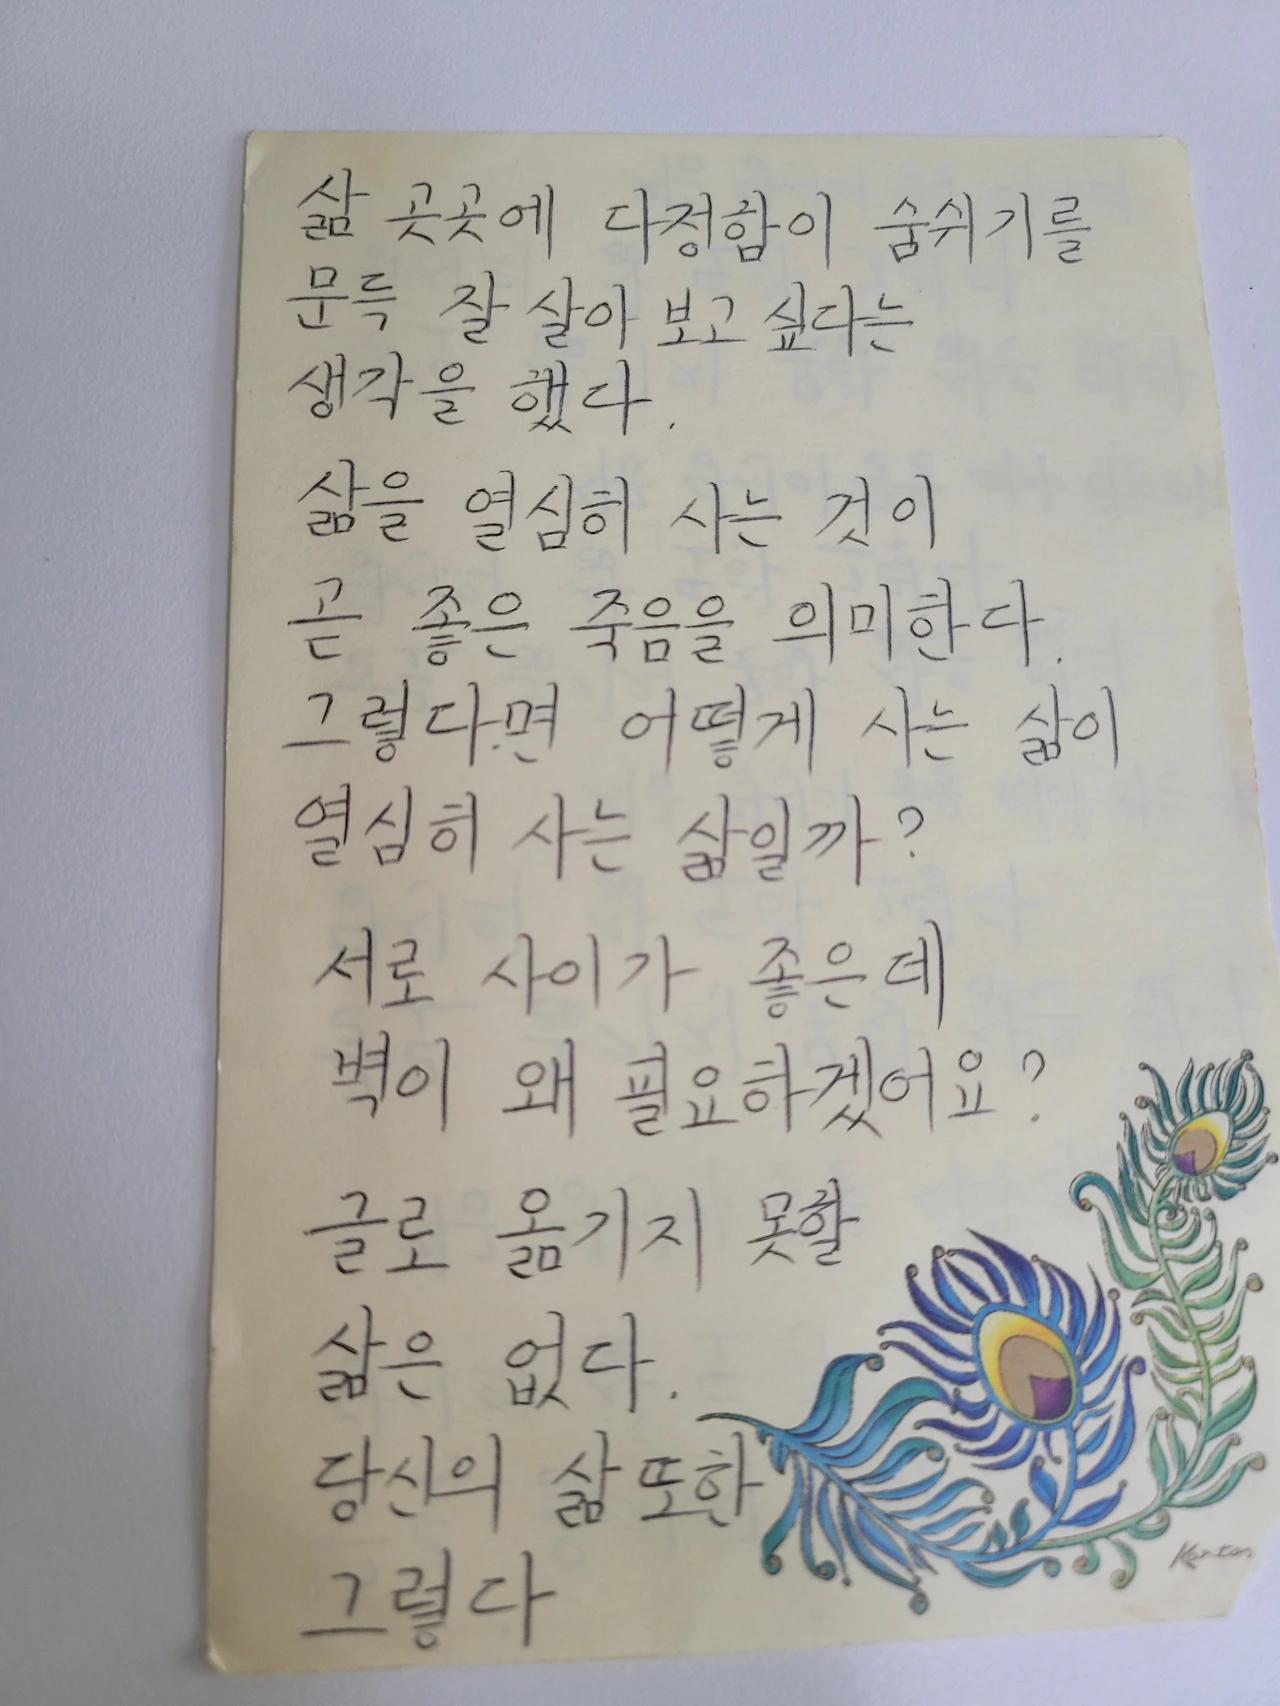 삶 곳곳에 다정함이 숨쉬기를
문득 잘 살아 보고 싶다는
생각을 했다.
삶을 열심히 사는 것이
곧 좋은 죽음을 의미한다.
그렇다면 어떻게 사는 삶이
열심히 사는 삶일까?
서로 사이가 좋은데
벽이 왜 필요하겠어요?
글로 옮기지 못할
삶은 없다.
당신의 삶 또한
그렇다